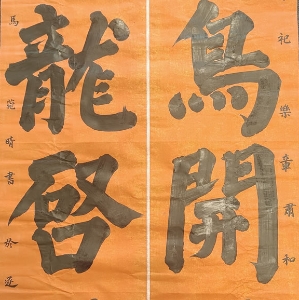 祀樂章肅和
鳥開
龍啓
馬
時書於